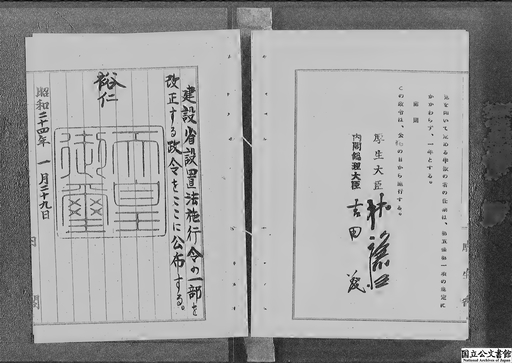 かかわらず、一年とする。
附則
この政令は、公布の日から施行する。
厚生大臣 林譲治
内閣総理大臣 吉田茂
建設省設置法施行令の一部を
改正する政令をここに公布する。
裕仁
天皇
御璽
昭和二十四年一月二十九日
内閣
国立公文書館
National Archives of Japan